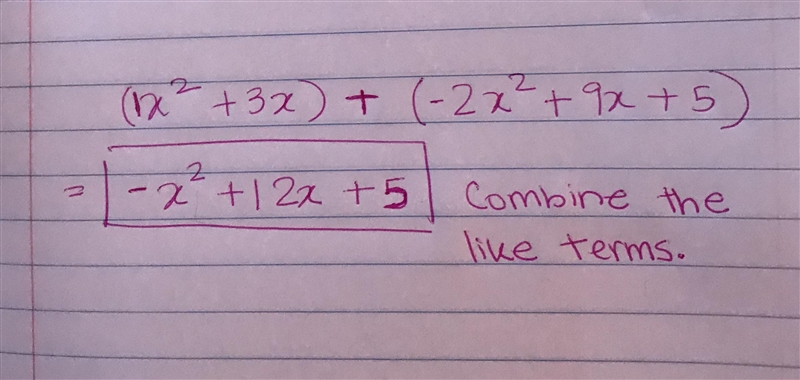 (1x² + 3x) + (-2x² + 9x + 5)
= -x² + 12x + 5 Combine the
like terms.